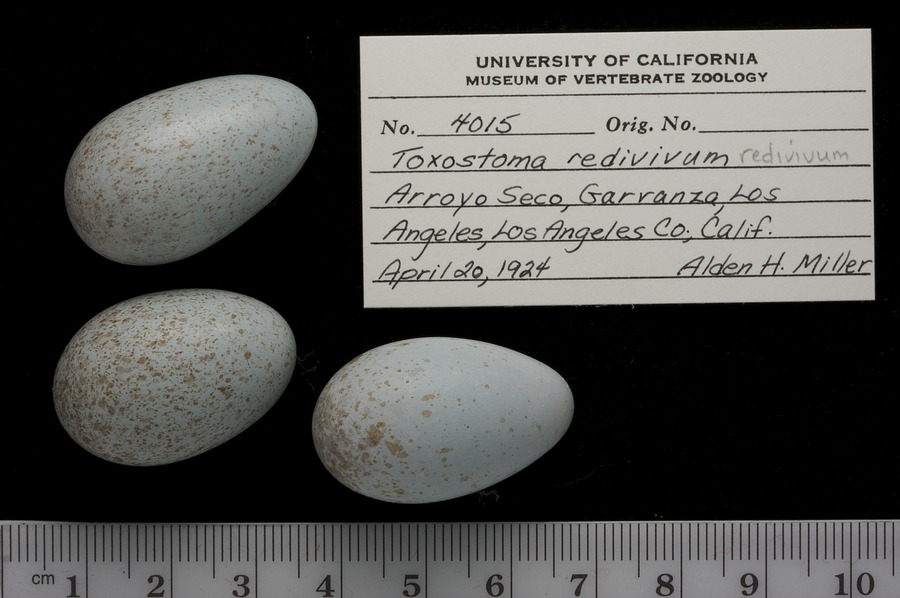 UNIVERSITY OF CALIFORNIA
MUSEUM OF VERTEBRATE ZOOLOGY
No. 4015 Orig. No.
Toxostoma redivivum redivivum
Arroyo Seco, Garvanza, Los
Angeles, Los Angeles Co., Calif.
April 20, 1924 Alden H. Miller
cm 1 2 3 4 5 6 7 8 9 10